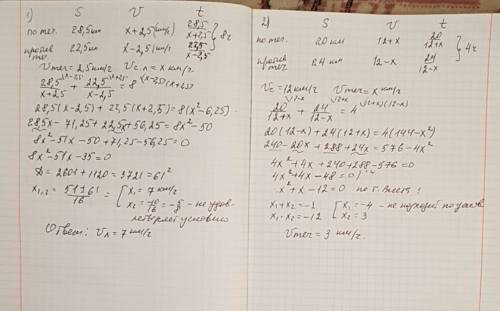 1) S V t
по теч. 28,5км x+2,5(км/ч) 28,5/(x+2,5)
против теч. 22,5км x-2,5км/ч 22,5/(x-2,5) } 8ч
Vтеч = 2,5км/ч Vс.л = x км/ч.
28,5/(x+2,5) \(x-2,5) + 22,5/(x-2,5) \(x+2,5) = 8 \(x-2,5)(x+2,5)
28,5(x-2,5)+22,5(x+2,5)=8(x²-6,25)
28,5x-71,25+22,5x+56,25=8x²-50
8x²-51x-50+71,25-56,25=0
8x²-51x-35=0
D=2601+1120=3721=61²
x₁,₂ = (51±61)/16 = [ x₁=7 км/ч
x₂ = -10/16 = -5/8 - не удов-
летворяет условию
Ответ: Vл = 7 км/ч
2) S V t
по теч. 20 км 12+x 20/(12+x)
против теч. 24 км 12-x 24/(12-x) } 4ч
Vс = 12 км/ч Vтеч = x км/ч
20/(12+x) \12-x + 24/(12-x) \12+x = 4 \(12+x)(12-x)
20(12-x)+24(12+x)=4(144-x²)
240-20x+288+24x=576-4x²
4x²+4x+240+288-576=0
4x²+4x-48=0 |:4
x²+x-12=0 по т. Виета:
x₁+x₂=-1
x₁·x₂=-12 [ x₁=-4 - не подходит по услов.
x₂=3
Vтеч = 3 км/ч.